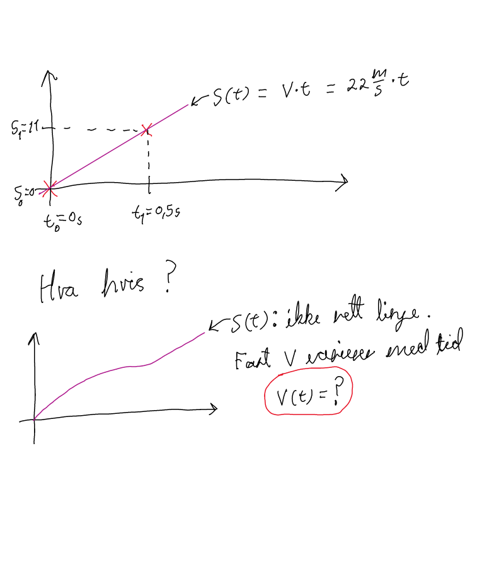 S(t) = V·t = 22 m/s · t
S₁=11
S₀=0
t₀=0s
t₁=0,5s
Hva hvis ?
S(t): ikke rett linje.
Fart V varierer med tid
V(t) = ?